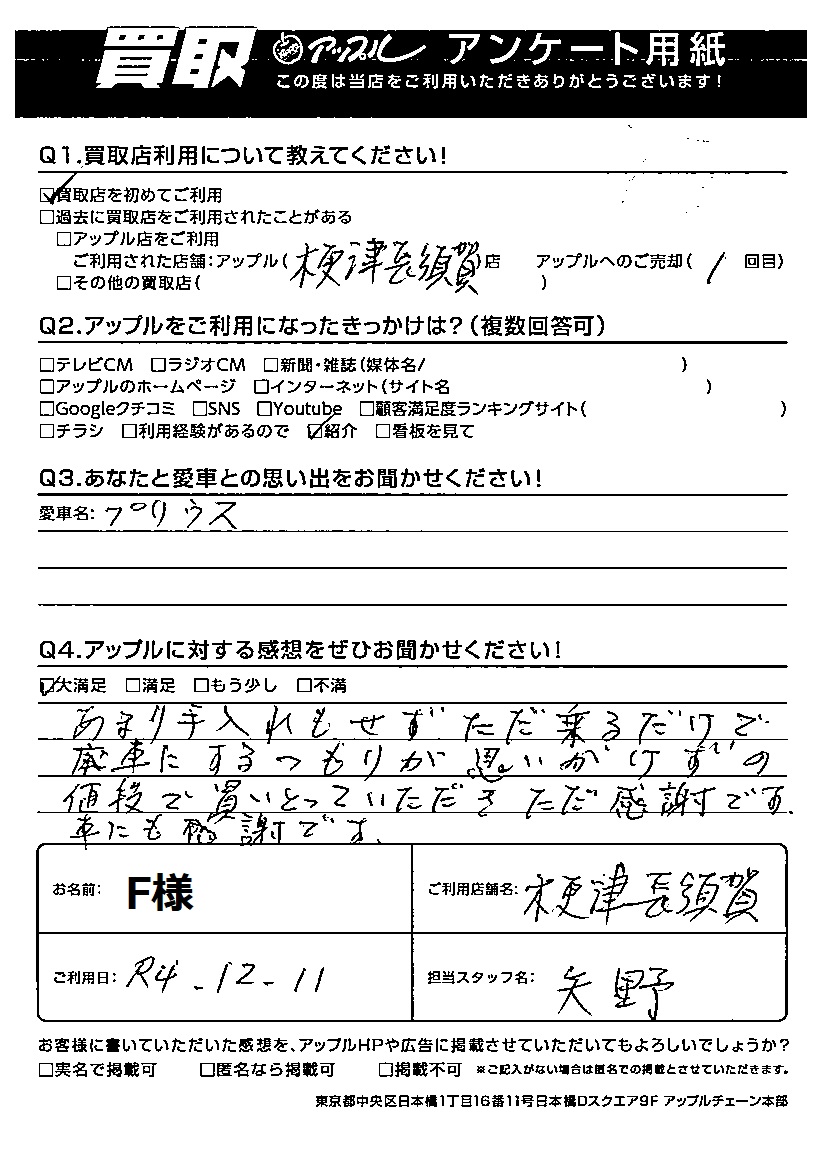 買取 アップル アンケート用紙
この度は当店をご利用いただきありがとうございます！
Q1.買取店利用について教えてください！
☑買取店を初めてご利用
□過去に買取店をご利用されたことがある
□アップル店をご利用
ご利用された店舗：アップル（梗津長須賀）店 アップルへのご売却（1 回目）
□その他の買取店（ ）
Q2.アップルをご利用になったきっかけは？（複数回答可）
□テレビCM □ラジオCM □新聞・雑誌（媒体名/ ）
□アップルのホームページ □インターネット（サイト名 ）
□Googleクチコミ □SNS □Youtube □顧客満足度ランキングサイト（ ）
□チラシ □利用経験があるので ☑紹介 □看板を見て
Q3.あなたと愛車との思い出をお聞かせください！
愛車名：プリウス
Q4.アップルに対する感想をぜひお聞かせください！
☑大満足 □満足 □もう少し □不満
あまり手入れもせずただ乗るだけで
廃車にするつもりが思いがけずの
値段で買いとっていただきただ感謝です.
車にも感謝です.
お名前： F様 ご利用店舗名：梗津長須賀
ご利用日：R4-12-11 担当スタッフ名：矢野
お客様に書いていただいた感想を、アップルHPや広告に掲載させていただいてもよろしいでしょうか？
□実名で掲載可 □匿名なら掲載可 □掲載不可 ※ご記入がない場合は匿名での掲載とさせていただきます。
東京都中央区日本橋1丁目16番11号日本橋Dスクエア9F アップルチェーン本部